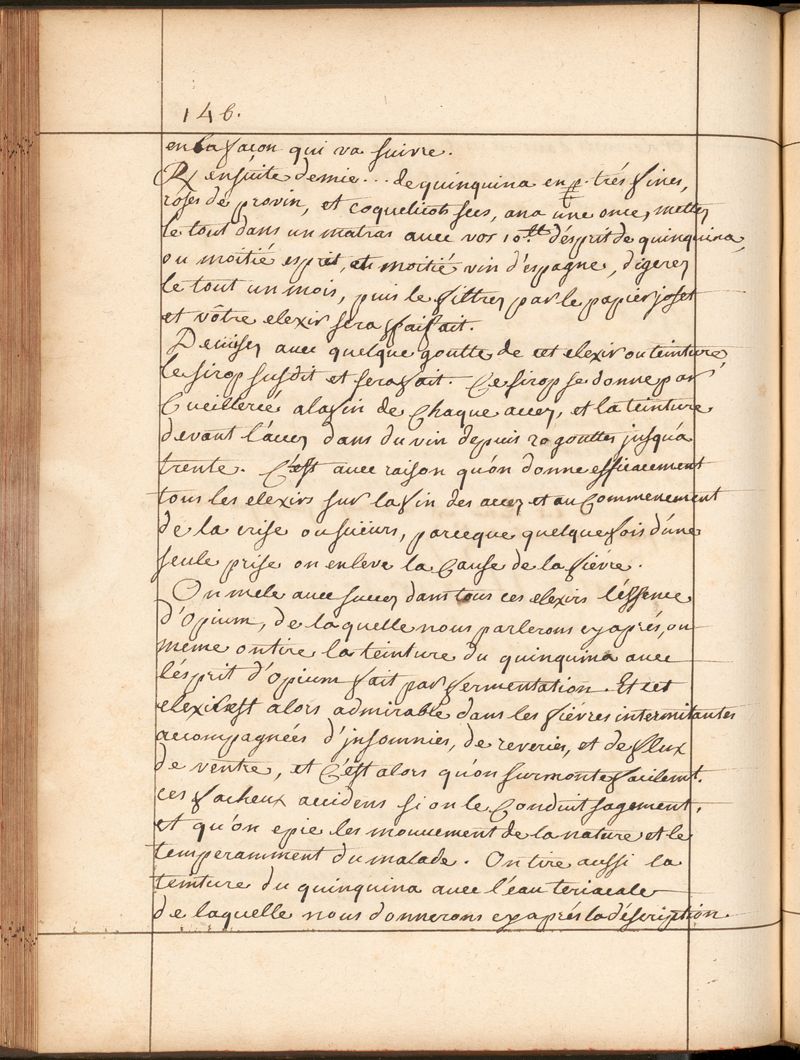 146.
en la façon qui va suivre.
℞ ensuite demie... de quinquina en p. trés fines,
roses de provin, et coquelicots secs, ana une once, mettez
le tout dans un matras avec vos 10.tt d'ésprit de quinquina,
ou moitié esprit, et moitié vin d'espagne, digerez
le tout un mois, puis le filtrez par le papier joset
et vôtre elexir sera parfait.
Deuisez avec quelque goutte de cet elexir ou teinture,
le sirop susdit et sera fait. Ce sirop se donne par
Cueillereé a la fin de Chaque accez, et la teinture
devant l'accez dans du vin depuis 20 gouttes jusqu'a
trente. C'est avec raison qu'on donne efficacement
tous les elexirs sur la fin des accez et au Commencement
de la crise ou süeurs, parceque quelque fois d'une
seule prise on enleve la Cause de la fiévre.
On mele avec succez dans tous ces elexirs l'éssence
d'Opium, de laquelle nous parlerons cy aprés, ou
même on tire la teinture du quinquina avec
l'ésprit d'opium fait par fermentation. Et cet
elexir est alors admirable dans les fiévres intermitantes
accompagnées d'insomnies, de reveries, et de flux
de ventre, et C'ést alors qu'on surmonte facilemt.
ces facheux accidens si on le Conduit sagement,
et qu'on epie les mouuement de la nature et le
temperamment du malade. On tire aussi la
teinture du quinquina avec l'eau teriacale
de laquelle nous donnerons cy aprés la déscription.